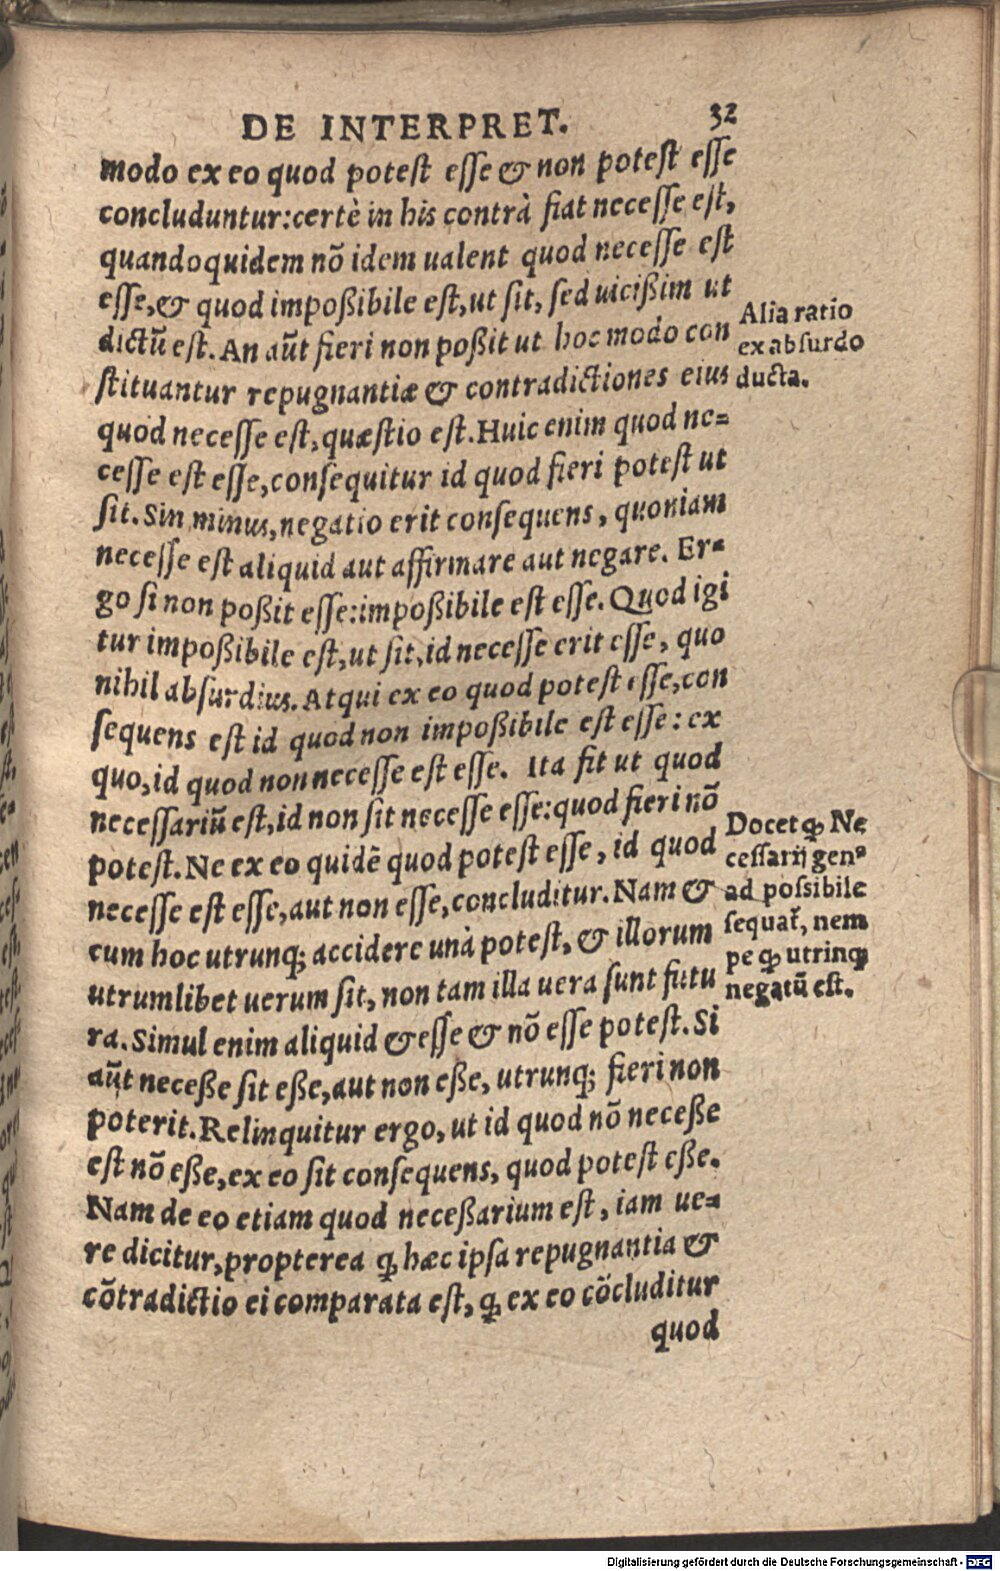 DE INTERPRET. 32
modo ex eo quod potest esse & non potest esse
concluduntur: certè in his contrà fiat necesse est,
quandoquidem nō idem ualent quod necesse est
esse, & quod impoßibile est, ut sit, sed uicißim ut
dictū est. An aūt fieri non poßit ut hoc modo con
stituantur repugnantiæ & contradictiones eius
quod necesse est, quæstio est. Huic enim quod ne=
cesse est esse, consequitur id quod fieri potest ut
sit. Sin minus, negatio erit consequens, quoniam
necesse est aliquid aut affirmare aut negare. Er=
go si non poßit esse: impoßibile est esse. Quod igi
tur impoßibile est, ut sit, id necesse erit esse, quo
nihil absurdius. Atqui ex eo quod potest esse, con
sequens est id quod non impoßibile est esse: ex
quo, id quod non necesse est esse. Ita fit ut quod
necessariū est, id non sit necesse esse: quod fieri nō
potest. Ne ex eo quidē quod potest esse, id quod
necesse est esse, aut non esse, concluditur. Nam &
cum hoc utrunq; accidere unà potest, & illorum
utrumlibet uerum sit, non tam illa uera sunt futu
ra. Simul enim aliquid & esse & nō esse potest. Si
aūt neceße sit eße, aut non eße, utrunq; fieri non
poterit. Relinquitur ergo, ut id quod nō neceße
est nō eße, ex eo sit consequens, quod potest eße.
Nam de eo etiam quod neceßarium est, iam ue=
re dicitur, propterea ꝙ hæc ipsa repugnantia &
cōtradictio ei comparata est, ꝙ ex eo cōcluditur
quod
Alia ratio
ex absurdo
ducta.
Docet ꝙ Ne
cessarij genꝰ
ad possibile
sequat̃, nem
pe ꝙ utrinq;
negatū est.
Digitalisierung gefördert durch die Deutsche Forschungsgemeinschaft - DFG